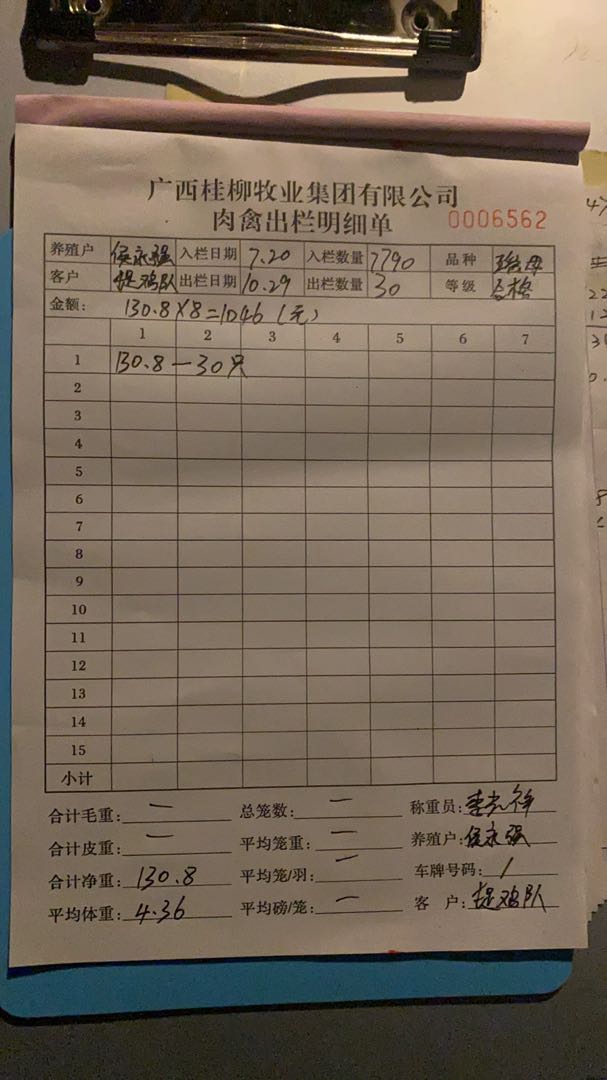 广西桂柳牧业集团有限公司
肉禽出栏明细单 0006562
养殖户 侯永强 入栏日期 7.20 入栏数量 7790 品种
客户 捉鸡队 出栏日期 10.29 出栏数量 30 等级 合格
金额: 130.8×8=1046(元)
1 2 3 4 5 6 7
1 130.8—30只
2
3
4
5
6
7
8
9
10
11
12
13
14
15
小计
合计毛重: — 总笼数: — 称重员:
合计皮重: — 平均笼重: — 养殖户: 侯永强
合计净重: 130.8 平均笼/羽: — 车牌号码: /
平均体重: 4.36 平均磅/笼: — 客户: 捉鸡队